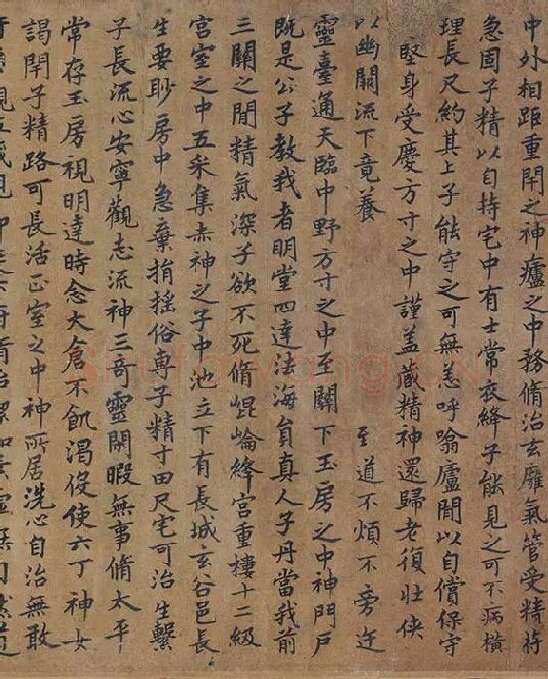 中外相距重閇之神廬之中務脩治玄靡氣管受精符
急固子精以自持宅中有士常衣絳子能見之可不病橫
理長尺約其上子能守之可無恙呼噏廬閒以自償保守
堅身受慶方寸之中謹盖藏精神還歸老復壯俠
以幽闕流下竟養 至道不煩不旁迕
靈臺通天臨中野方寸之中至關下玉房之中神門戶
既是公子教我者明堂四達法海員真人子丹當我前
三關之閒精氣深子欲不死脩崐崘絳宮重樓十二級
宮室之中五采集赤神之子中池立下有長城玄谷邑長
生要眇房中急棄捐搖俗専子精寸田尺宅可治生繫
子長流心安寧觀志流神三奇靈閑暇無事脩太平
常存玉房視明達時念大倉不飢渴役使六丁神女
謁閇子精路可長活正室之中神所居洗心自治無敢